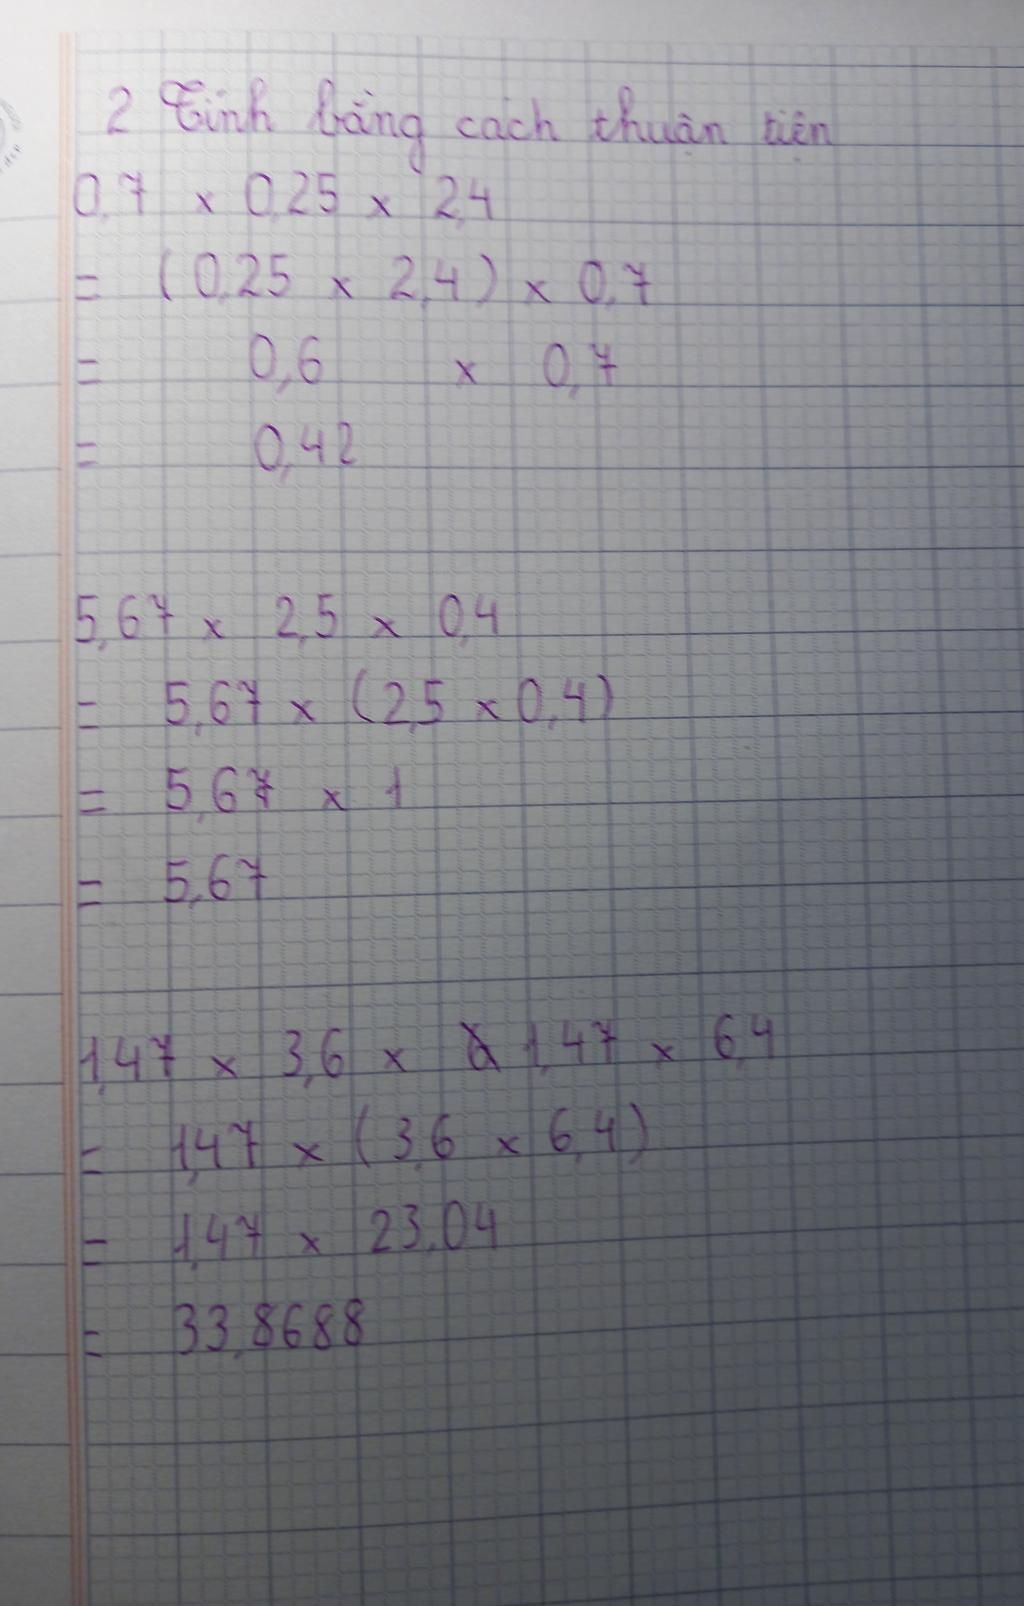 2 Tính bằng cách thuận tiện
0,7 x 0,25 x 2,4
= (0,25 x 2,4) x 0,7
= 0,6 x 0,7
= 0,42
5,67 x 2,5 x 0,4
= 5,67 x (2,5 x 0,4)
= 5,67 x 1
= 5,67
1,47 x 3,6 x 1,47 x 6,4
= 1,47 x (3,6 x 6,4)
= 1,47 x 23,04
= 33,8688